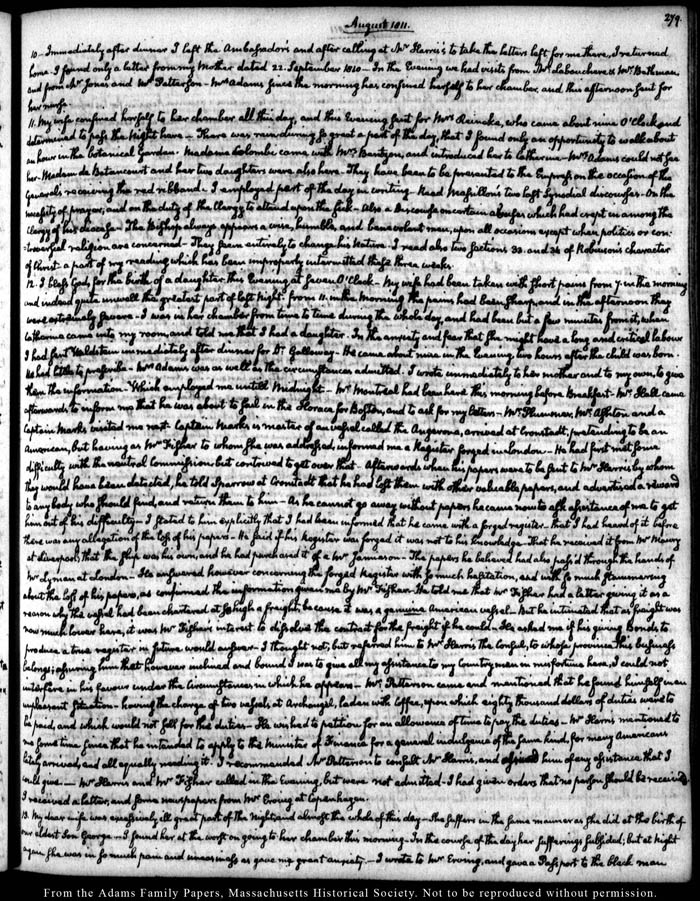 August 1811.
279.
10. Immediately after dinner I left the Ambassador's and after calling at Mr Harris's to take the letters left for me there, I returned
home. I found only a letter from my Mother dated 22. September 1810. In the Evening we had visits from Mr Labouchere & Mr Bethman
and from Mr Jones and Mr Patterson. Mrs Adams since the morning has confined herself to her chamber, and this afternoon sent for
her nurse.
11. My wife confined herself to her chamber all this day, and this Evening sent for Mrs Heincke, who came about nine O'Clock and
determined to pass the Night here. There was rain during so great a part of the day, that I found only an opportunity to walk about
an hour in the botanical Garden. Madame Colombi came with Mrs Bentzon, and introduced her to Catherine. Mrs Adams could not see
her. Madam de Betancourt and her two daughters were also here. They have been to be presented to the Empress on the occasion of the
General's receiving the red ribband. I employed part of the day in writing. Read Massillon's two last Synodical discourses. On the
necessity of prayer, and on the duty of the Clergy to attend upon the sick. Also a Discourse on certain abuses which had crept in among the
Clergy of his diocese. The Bishop always appears a wise, humble, and benevolent man, upon all occasions except when politics or con-
-troversial religion are concerned. They seem entirely to change his Nature. I read also two sections 33. and 34 of Robinson's character
of Christ. a part of my reading which has been improperly intermitted these three weeks.
12. I bless God for the birth of a daughter this Evening at seven O'Clock. My wife had been taken with short pains from 7. in the morning
and indeed quite unwell the greatest part of last Night. From 11. in the Morning the pains had been sharp, and in the afternoon they
were extremely severe. I was in her chamber from time to time during the whole day, and had been but a few minutes from it, when
Catherine came into my room, and told me that I had a daughter. In the anxiety and fear that she might have a long and critical labour
I had sent Waldstein immediately after dinner for Dr Galloway. He came about nine in the Evening, two hours after the child was born.
He had little to prescribe. Mrs Adams was as well as the circumstances admitted. I wrote immediately to her mother and to my own, to give
them the information. Which employed me untill Midnight. Mr Montreal had been here this morning before Breakfast. Mr Hall came
afterwards to inform me that he was about to sail in the Horace for Boston, and to ask for my letters. Mr Plummer, Mr Ashton and a
Captain Marks visited me next. Captain Marks is master of a vessel called the Angerona, arrived at Cronstadt, pretending to be an
American, but having as Mr Fisher to whom she was addressed, informed me a Register forged in London. He had first met some
difficulty with the neutral Commission, but contrived to get over that. Afterwards when his papers were to be sent to Mr Harris by whom
they would have been detected, he told Sparrow at Cronstadt that he had lost them with other valuable papers, and advertised a reward
to any body who should find, and return them to him. As he cannot go away without papers he came now to ask assistance of me to get
him out of his difficulty. I stated to him explicitly that I had been informed that he came with a forged register. That I had heard of it before
there was any allegation of the loss of his papers. He said if his Register was forged it was not to his knowledge. That he received it from Mr Maury
at Liverpool; that the ship was his own, and he had purchased it of a Mr Jameson. The papers he believed had also pass'd through the hands of
Mr Lyman at London. He answered however concerning the forged Register with so much hesitation, and with so much stammering
about the loss of his papers, as confirmed the information given me by Mr Fisher. He told me that Mr Fisher had a letter giving it as a
reason why the vessel had been chartered at so high a freight, because it was a genuine American vessel. But he intimated that as freight was
now much lower here, it was Mr Fisher's interest to dissolve the contract for the freight if he could. He asked me if his giving Bonds to
produce a true register in future would answer. I thought not, but referred him to Mr Harris the Consul, to whose province this business
belongs; assuring him that however inclined and bound I was to give all my assistance to my Countrymen in misfortune here, I could not
interfere in his favour under the Circumstances, in which he appears. Mr Patterson came and mentioned that he found himself in an
unpleasant situation. having the charge of two vessels, at Archangel, laden with Coffee, upon which eighty thousand dollars of duties were to
be paid, and which would not sell for the duties. He wished to petition for an allowance of time to pay the duties. Mr Harris mentioned to
me some time since that he intended to apply to the Minister of Finance for a general indulgence of the same kind, for many Americans
lately arrived, and all equally needing it. I recommended Mr Patterson to consult Mr Harris, and assured him of any assistance that I
could give. Mr Harris and Mr Fisher called in the Evening, but were not admitted. I had given orders that no person should be received.
I received a letter, and some newspapers from Mr Erving at Copenhagen.
13. My dear wife was excessively ill great part of the Night, and almost the whole of this day. She suffers in the same manner as she did at the birth of
our eldest Son George. I found her at the worst on going to her chamber this morning. In the course of the day her sufferings subsided; but at Night
again she was in so much pain and uneasiness as gave me great anxiety. I wrote to Mr Erving, and gave a Passport to the black man
From the Adams Family Papers, Massachusetts Historical Society. Not to be reproduced without permission.